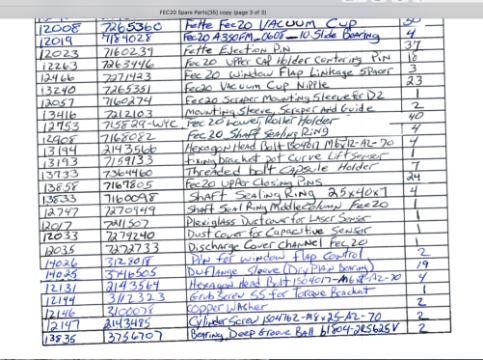 FEC20 Spare Parts(35) copy (page 3 of 3)
12008 7265360 Fette Fec20 VACUUM CUP 30
12019 7184028 Fec20 A350FM-060F-10 Slide Bearing 4
12023 7160239 Fette Ejection Pin 37
12263 7263446 Fec 20 Upper Cap Holder Centering Pin 18
12466 7271423 Fec 20 Window Flap Linkage Spacer 3
13240 7265351 Fec20 Vacuum Cup Nipple 23
12057 7160274 Fec20 Scraper Mounting Sleeve for D2 1
13416 7212103 Mounting Sleeve, Scraper And Guide 2
12953 715829-WYC Fec 20 Lower Roller Holder 40
12908 7168082 Fec 20 Shaft Sealing Ring 4
13194 2143566 Hexagon Head Bolt ISO4017 M6x12-A2-70 4
13193 7159133 fixing bracket pot Curve Lift Sensor 1
13733 7364460 Threaded bolt Capsule Holder 7
13858 7167805 Fec20 Upper Closing Pins 24
13833 7160098 Shaft Sealing Ring 25x40x7 4
12747 7270949 Shaft Seal Ring Middle Column Fec20 1
12017 7211507 Plexiglass Dustcover for Laser Sensor 1
12033 7274240 Dust Cover for Capacitive Sensor 1
12035 7272733 Discharge Cover Channel Fec 20 1
14026 3128018 Pin for Window Flap Control 2
14025 3746505 Duflange Sleeve (Dryplan bearing) 19
12131 2143564 Hexagon Head Bolt ISO4017-M6x12-A2-70 4
12144 3112323 Grub Screw SS for Torque Bracket 1
12146 2100078 Copper Washer 2
12147 2143485 Cylinder Screw ISO4762-M8x25-A2-70 2
13835 3756707 Bearing, Deep Groove Ball 61804-2RS625V 2